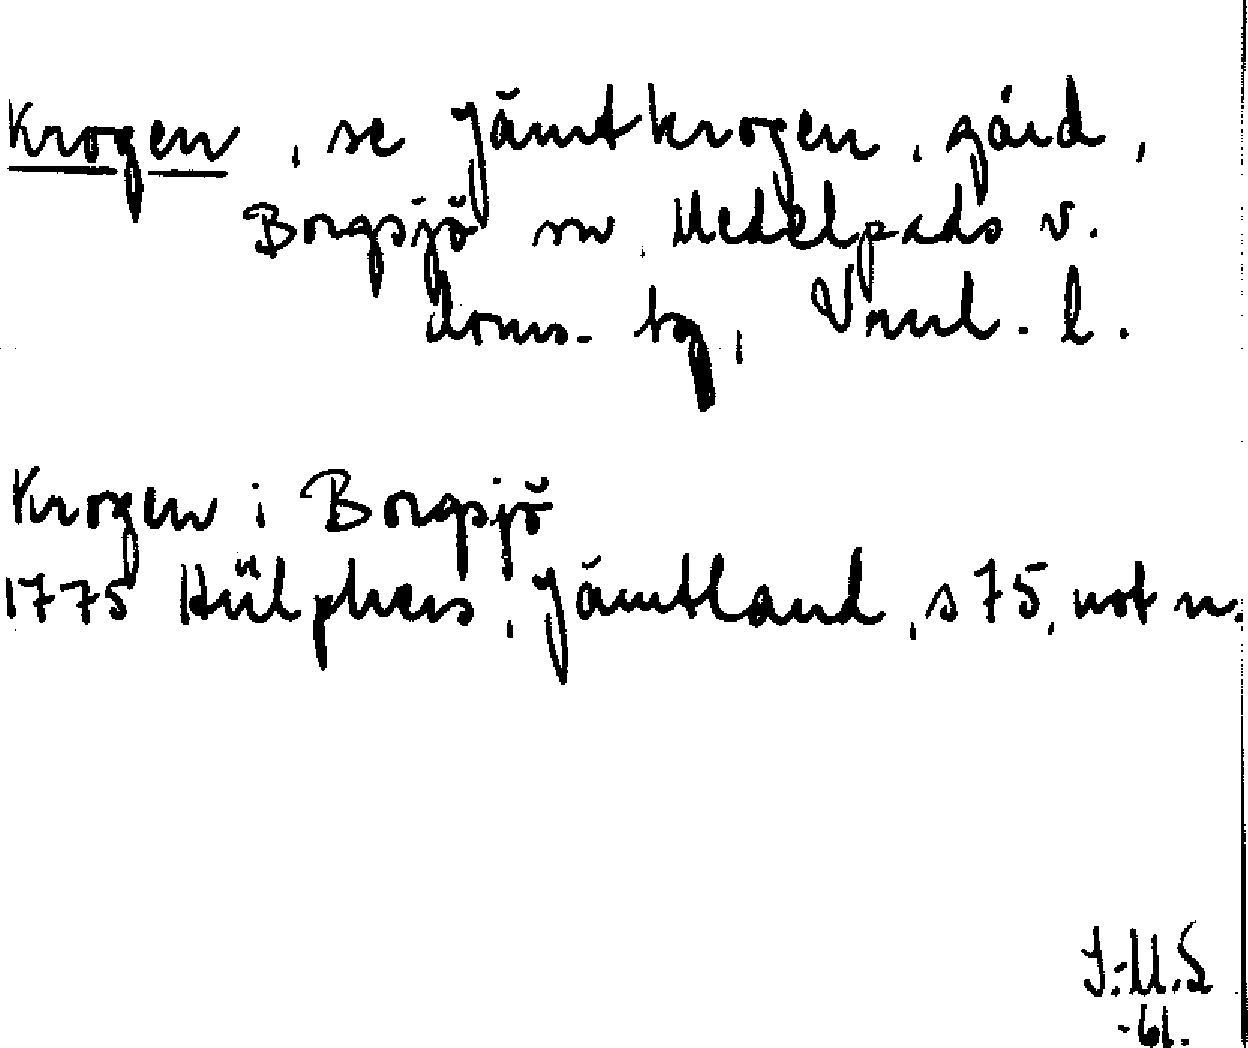 Krogen, se Jämtkrogen, gård,
Borgsjö sn, Medelpads v.
doms. tg, Vnul. l.
Krogen i Borgsjö
1775 Hülphers, Jämtland, s 75, not n.
-61.